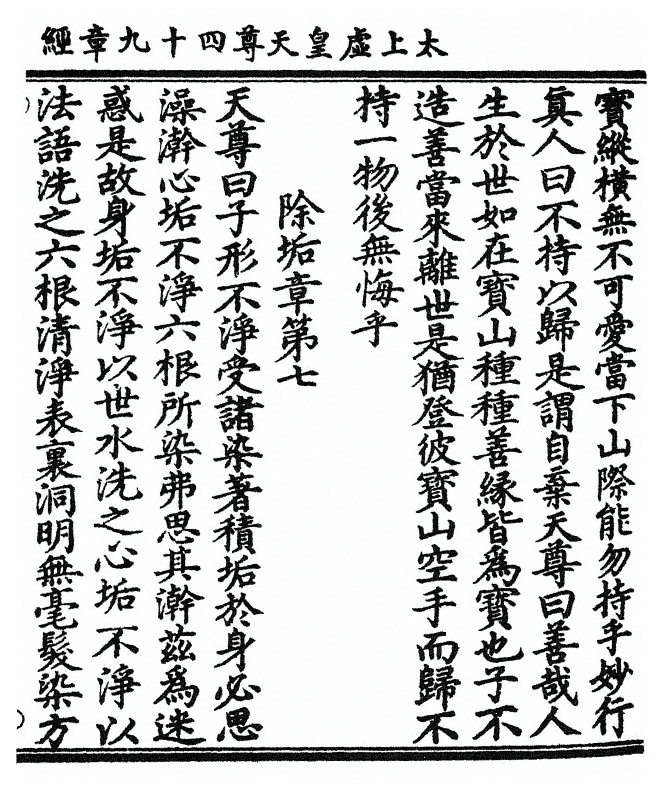 太上虛皇天尊四十九章經
寶縱橫無不可愛當下山際能勿持乎妙行
眞人曰不持以歸是謂自棄天尊曰善哉人
生於世如在寶山種種善緣皆爲寶也子不
造善當來離世是猶登彼寶山空手而歸不
持一物後無悔乎
除垢章第七
天尊曰子形不淨受諸染著積垢於身必思
澡澣心垢不淨六根所染弗思其澣茲爲迷
惑是故身垢不淨以世水洗之心垢不淨以
法語洗之六根清淨表裏洞明無毫髮染方